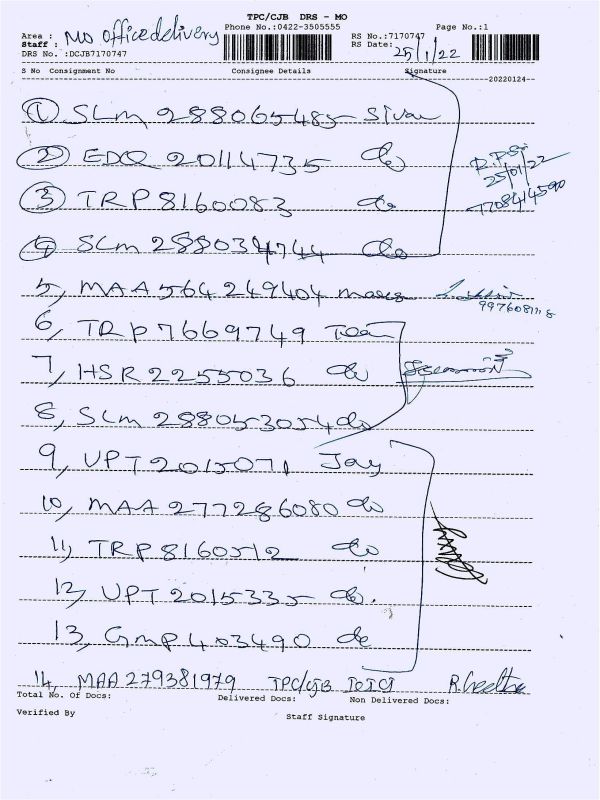 TPC/CJB DRS - MO
Phone No.:0422-3505555
Page No.:1
Area : MO office delivery
Staff :
DRS No. :DCJB7170747
RS No.:7170747
RS Date: 25/1/22
S No Consignment No Consignee Details Signature
20220124
1 SLM 288065485 Sivan
2 EDQ 20114735 do
R.P
25/01/22
7708414590
3 TRP 8160083 do
4 SLM 288034744 do
5, MAA 564249404
6, TRP 7669749
7, HSR 2255036 do
8, SLM 288053054 do
9, UPT 2015071 Jay
10, MAA 277286080 do
11, TRP 8160512 do
12, UPT 2015335 do.
13, GMP 403490 do
14, MAA 279381979 TPC/CJB ICICI R.Geetha
Total No. Of Docs: Delivered Docs: Non Delivered Docs:
Verified By
Staff Signature